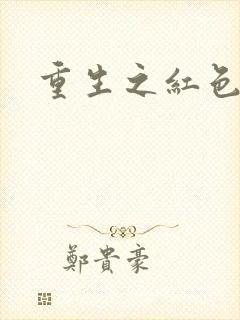 重生之紅色
鄭貴豪